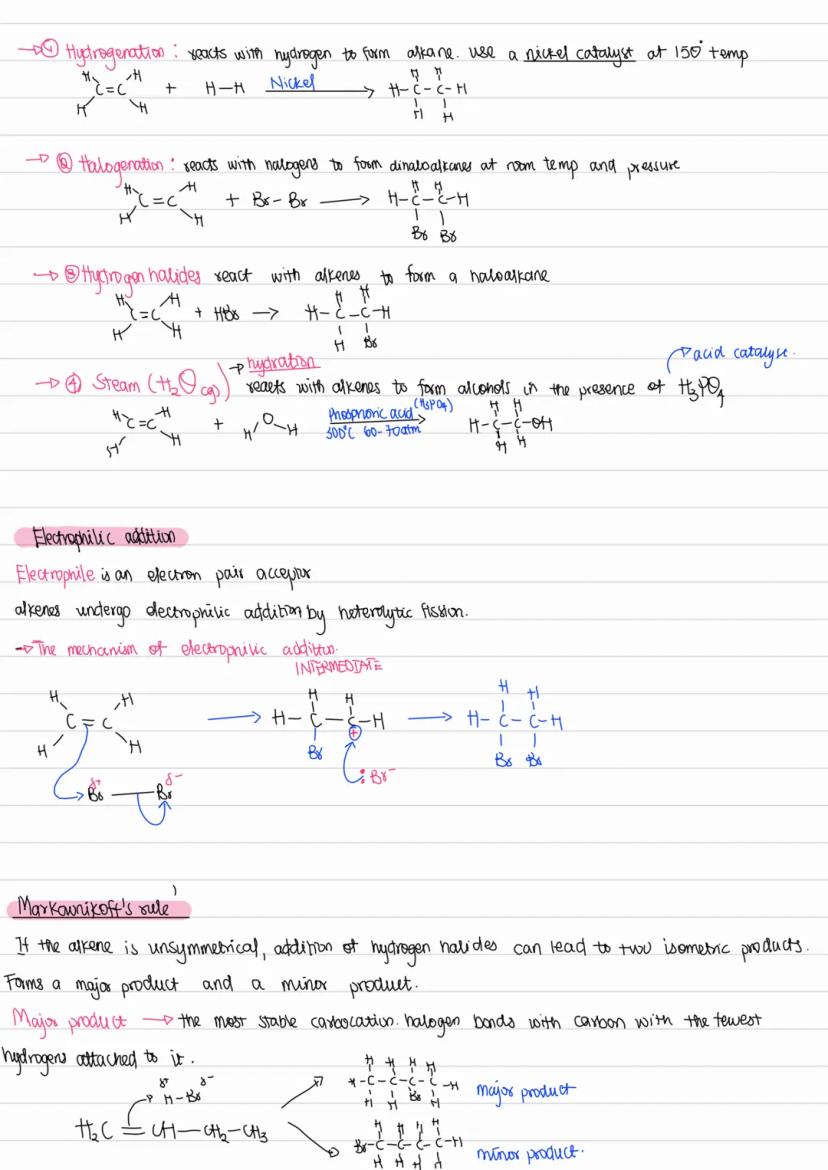 →① Hydrogenation : reacts with hydrogen to form alkane. Use a nickel catalyst at 150° temp
H H C=C H H + H—H Nickel → H-C-C-H H H H H
→② Halogenation : reacts with halogens to form dihaloalkanes at room temp and pressure
H H C=C H H + Br-Br → H-C-C-H H H Br Br
→③ Hydrogen halides react with alkenes to form a haloalkane
H H C=C H H + HBr → H-C-C-H H H H Br
→ hydration
acid catalyse.
→④ Steam (H₂O (g)) reacts with alkenes to form alcohols in the presence of H₃PO₄
H H C=C H H + H O H Phosphoric acid (H₃PO₄) 300°C 60-70atm → H-C-C-OH H H H H
Electrophilic addition
Electrophile is an electron pair acceptor
alkenes undergo electrophilic addition by heterolytic fission.
→ The mechanism of electrophilic addition.
INTERMEDIATE
H H C=C H H → H-C-C-H H H Br + → H-C-C-H H H Br Br
:Br⁻
δ+ Br — Br δ-
Markownikoff's rule
If the alkene is unsymmetrical, addition of hydrogen halides can lead to two isometric products.
Forms a major product and a minor product.
Major product → the most stable carbocation. halogen bonds with carbon with the fewest
hydrogens attached to it.
δ+ δ-
H-Br
H-C-C-C-C-H H H H H H H Br H major product
H₂C=CH-CH₂-CH₃
Br-C-C-C-C-H H H H H H H H H minor product.